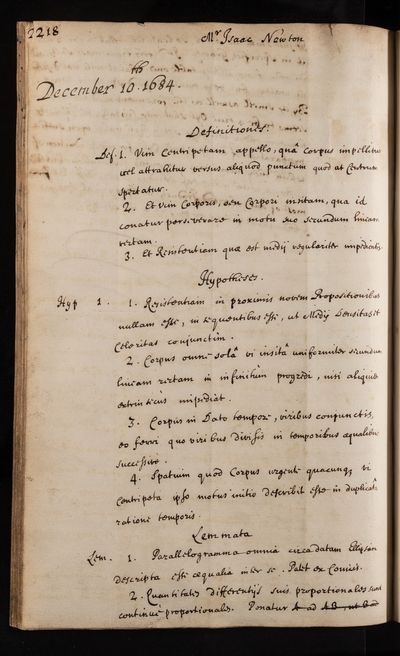 2218
Mr Isaac Newton
December 10th 1684.
Definitiones.
Def. 1. Vim Centripetam appello, quâ Corpus impellitur
vel attrahitur versus aliquod punctum quod ut Centrum
spectatur.
2. Et vim Corporis, seu Corpori insitam, qua id
conatur perseverare in motu suo secundum lineam
rectam.
3. Et Resistentiam quæ est medij regulariter impedientis
Hypotheses.
Hyp 1. 1. Resistentiam in proximis novem Propositionibus
nullam esse, in sequentibus esse, ut Medij Densitas et
Celeritas conjunctim.
2. Corpus omne solâ vi insitâ uniformiter secundum
lineam rectam in infinitum progredi, nisi aliquid
extrinsecus impediat.
3. Corpus in Dato tempore, viribus conjunctis,
eo ferri quo viribus divisis in temporibus æqualibus
successive.
4. Spatium quod Corpus urgente quacunq; vi
Centripeta ipso motus initio describit esse in duplicatâ
ratione temporis.
Lemmata
Lem. 1. Parallelogramma omnia circa datam Ellipsin
descripta esse æqualia inter se. Patet ex Conicis.
2. Quantitates differentijs suis proportionales sunt
continuè proportionales. Ponatur A ad A-B, ut B ad